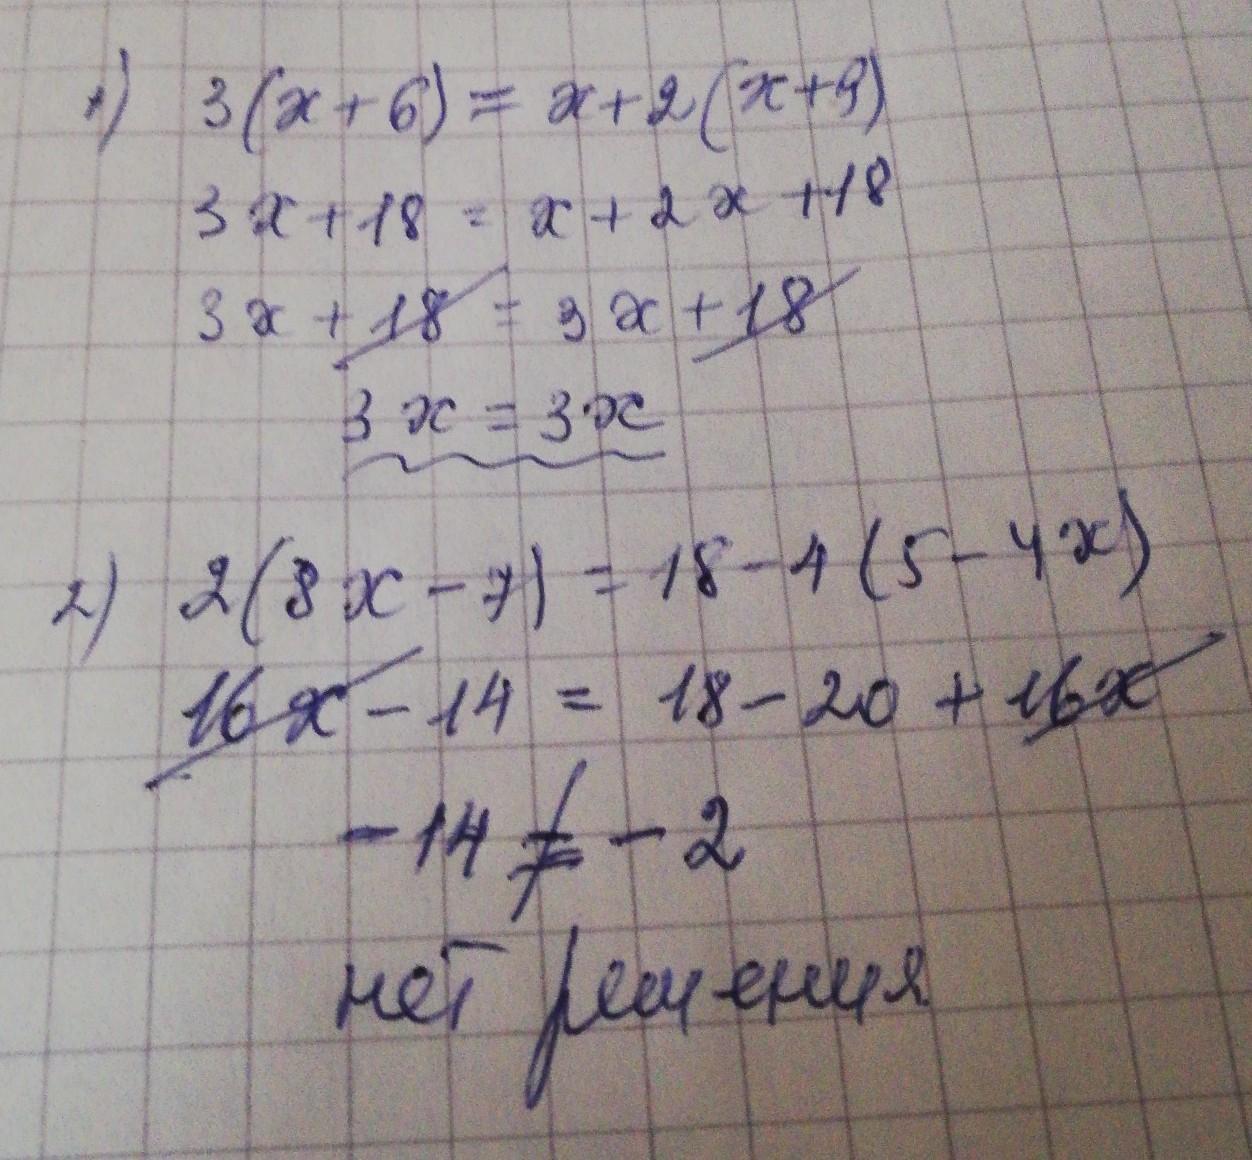 1) 3(x+6)=x+2(x+9)
3x+18=x+2x+18
3x+18=3x+18
3x=3x
2) 2(8x-7)=18-4(5-4x)
16x-14=18-20+16x
-14≠-2
нет решения